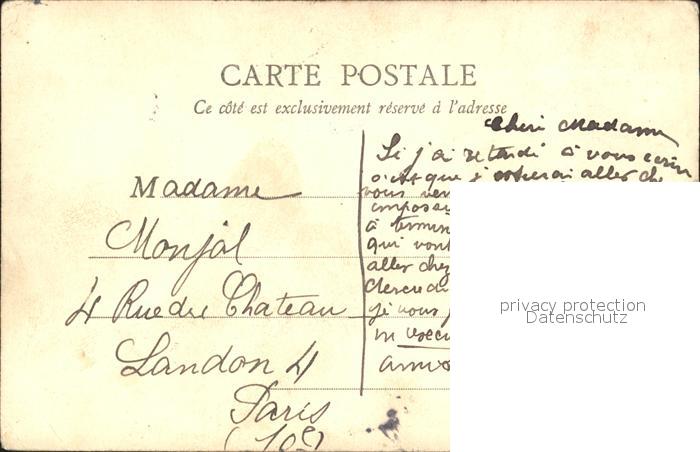 CARTE POSTALE
Ce côté est exclusivement réservé à l'adresse
Cheri Madame
Si j'ai retardé à vous écrir
c'est que j' aller che
vous ven
imposs
à termin
qui vont
aller chez
je vous
Madame
Monjal
4 Rue du Chateau
Landon 4
Paris
(10e)
privacy protection
Datenschutz